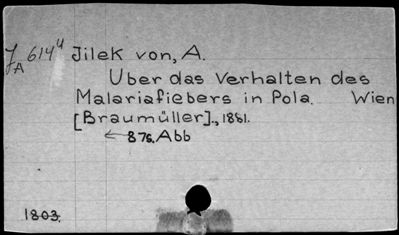 J 614⁴ Jilek von, A.
A
Uber das Verhalten des
Malariafiebers in Pola. Wien
[Braumüller]., 1881.
87s. Abb
1803.